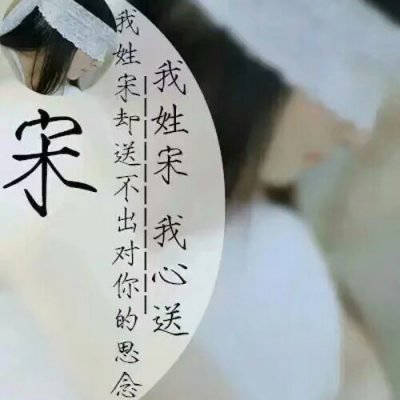 宋
我姓宋却送不出对你的思念
我姓宋 我心送